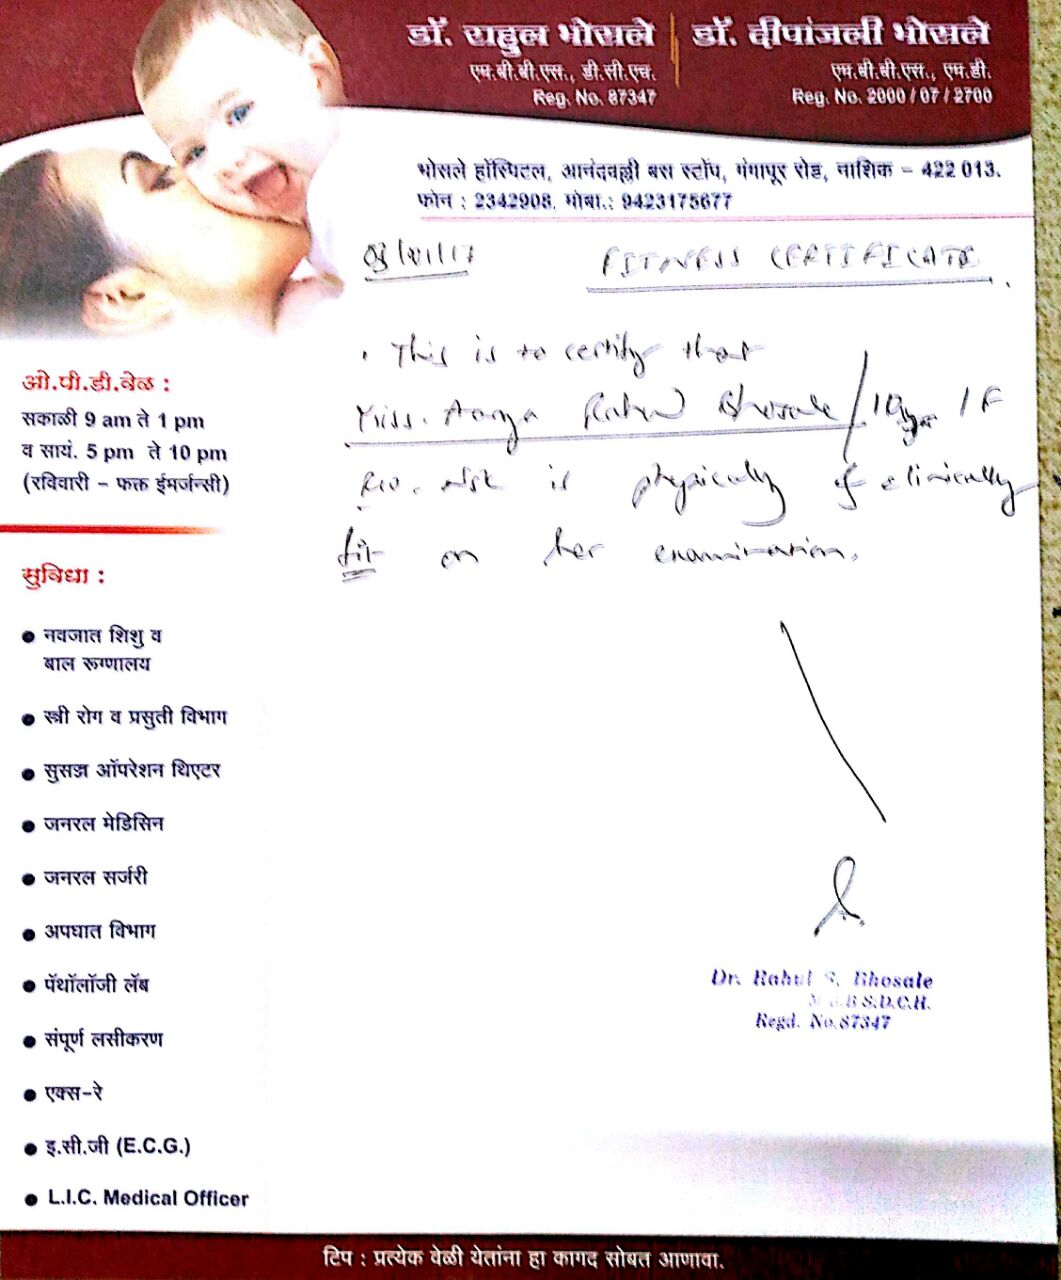 डॉ. राहुल भोसले
एम.बी.बी.एस., डी.सी.एच.
Reg. No. 87347
डॉ. दीपांजली भोसले
एम.बी.बी.एस., एम.डी.
Reg. No. 2000 / 07 / 2700
भोसले हॉस्पिटल, आनंदवल्ली बस स्टॉप, गंगापूर रोड, नाशिक – 422 013.
फोन : 2342908, मोबा.: 9423175677
FITNESS CERTIFICATE
This is to certify that
Miss. Aarya Rahul Bhosale / 10 yr / F
Nsk is physically & clinically
fit on her examination.
Dr. Rahul S. Bhosale
M.B.B.S.D.C.H.
Regd. No.87347
ओ.पी.डी.वेळ :
सकाळी 9 am ते 1 pm
व सायं. 5 pm ते 10 pm
(रविवारी – फक्त ईमर्जन्सी)
सुविधा :
● नवजात शिशु व
बाल रुग्णालय
● स्त्री रोग व प्रसुती विभाग
● सुसज्ज ऑपरेशन थिएटर
● जनरल मेडिसिन
● जनरल सर्जरी
● अपघात विभाग
● पॅथॉलॉजी लॅब
● संपूर्ण लसीकरण
● एक्स-रे
● इ.सी.जी (E.C.G.)
● L.I.C. Medical Officer
टिप : प्रत्येक वेळी येतांना हा कागद सोबत आणावा.